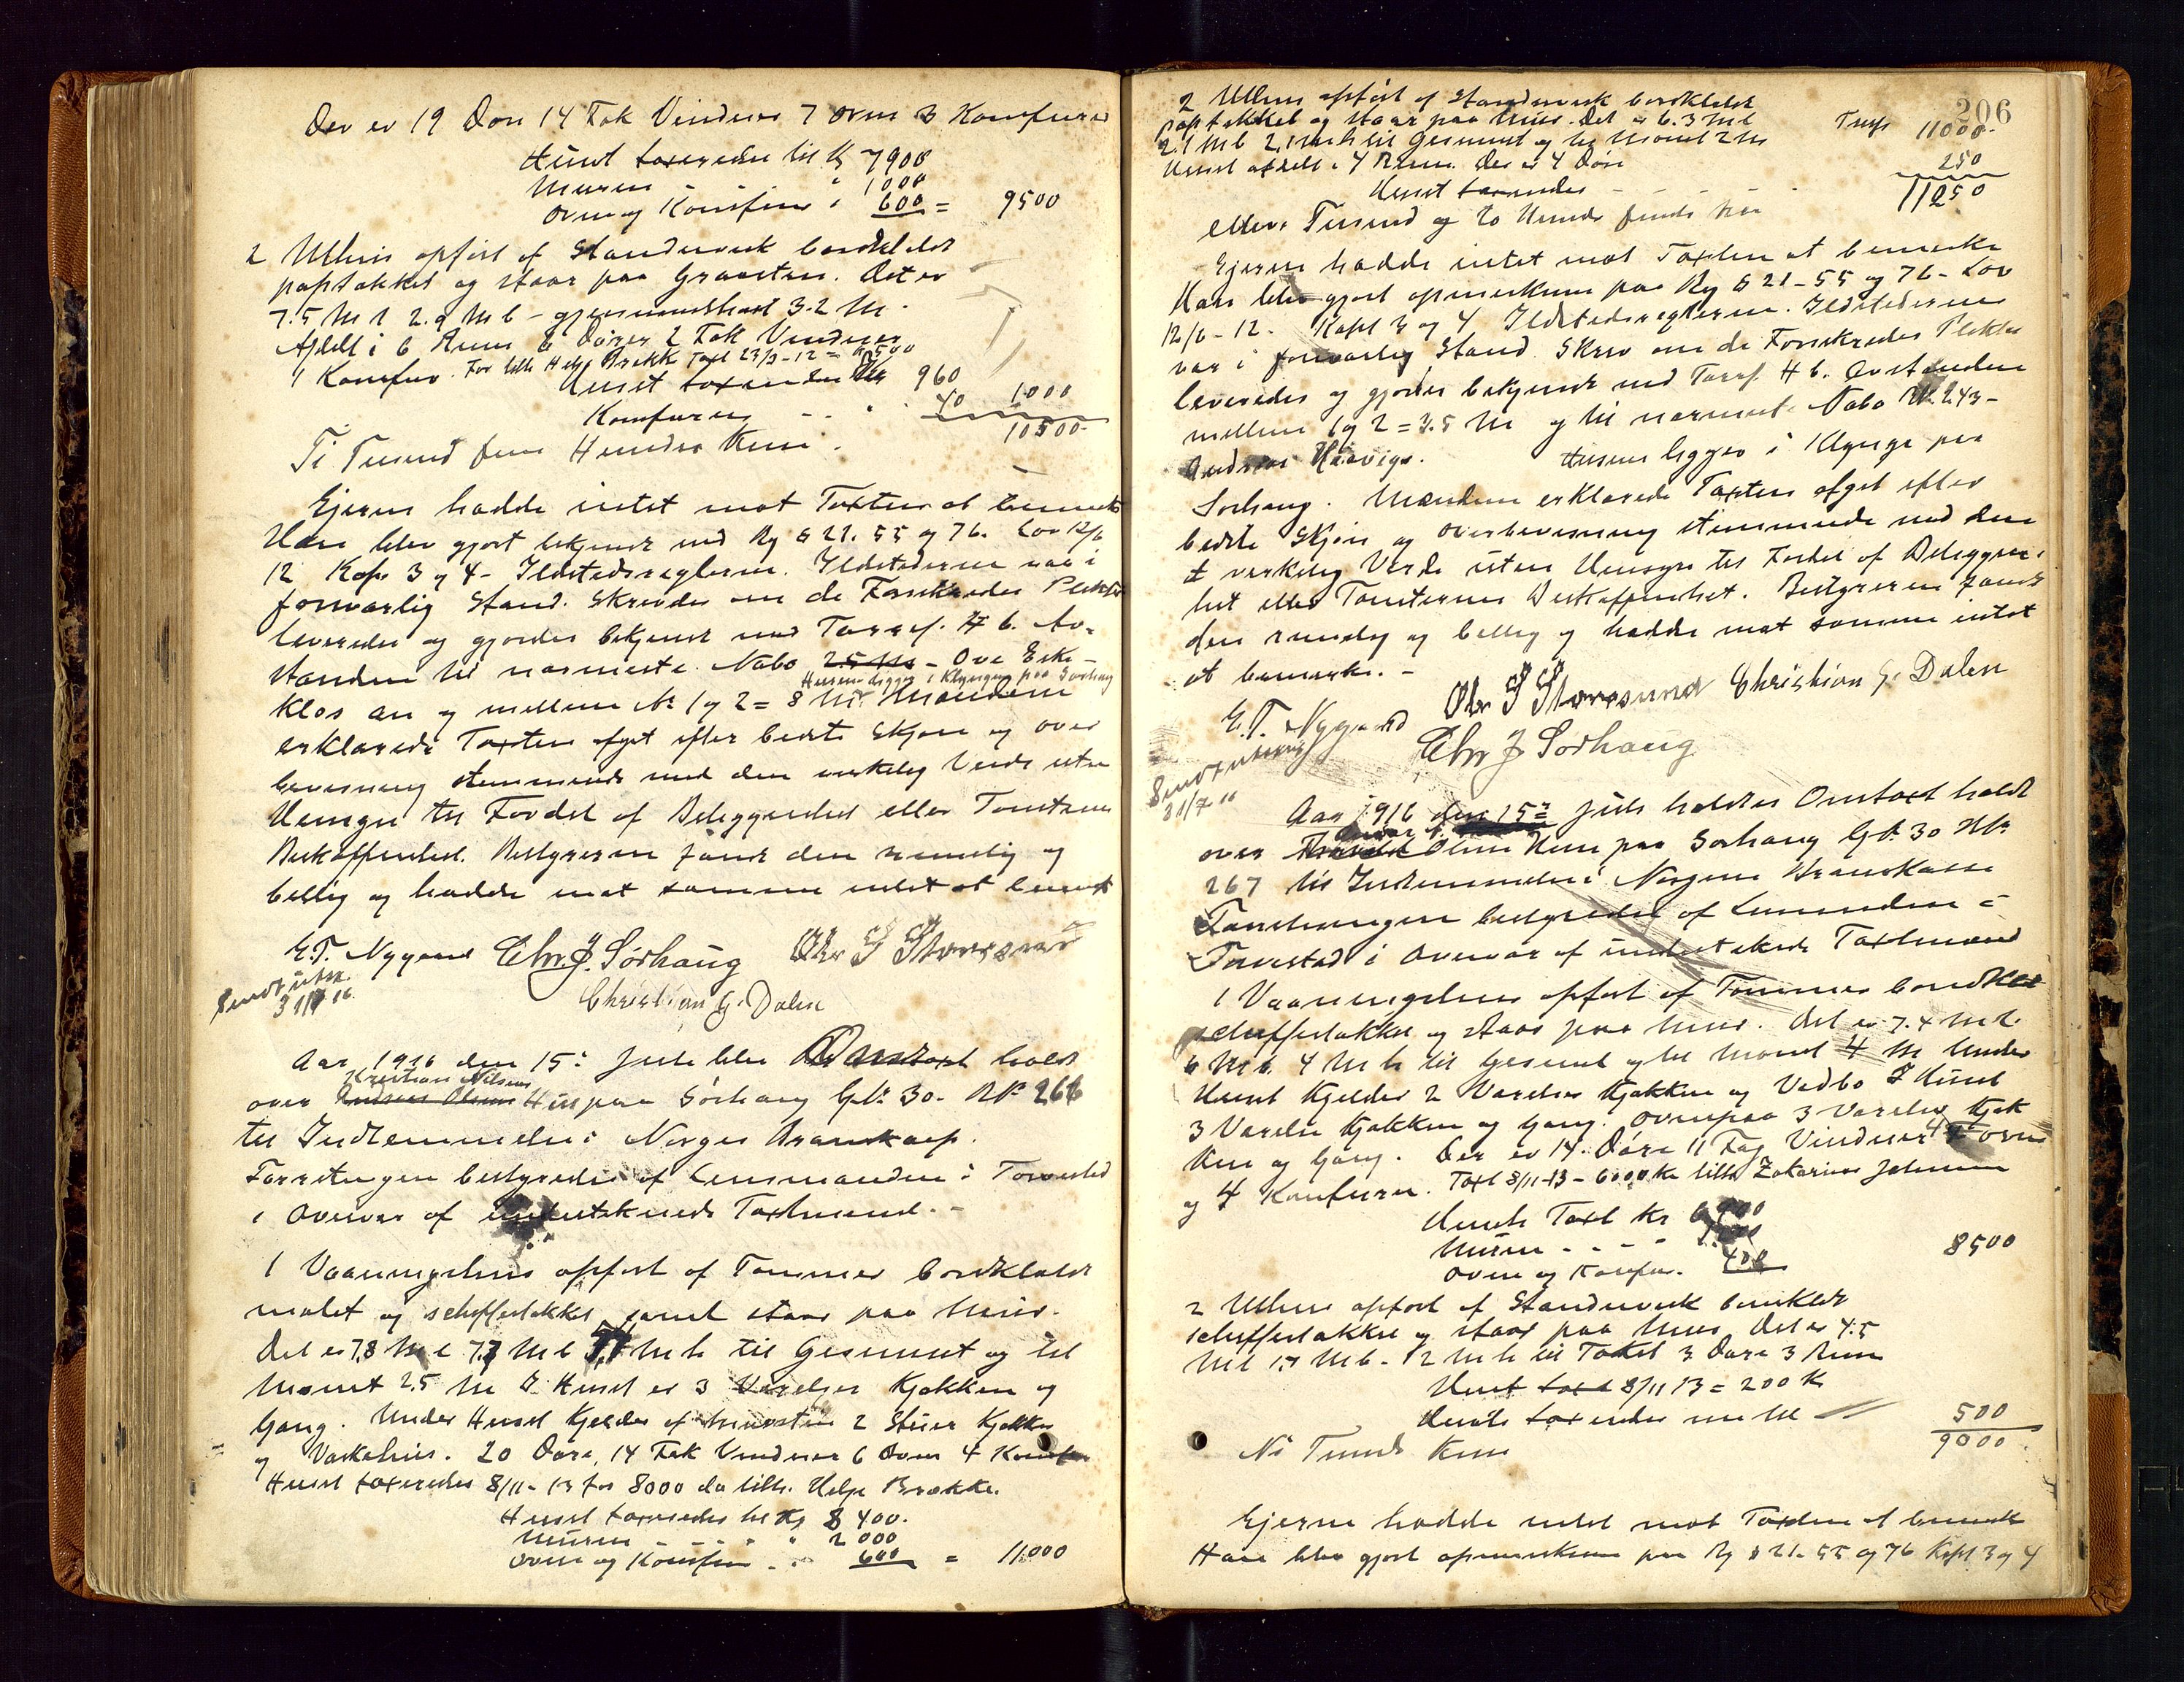 Der er 19 Døre 14 Fak Vinduer 7 ovne 3 Komfurer
Huset taxeredes til Kr 7900
Muren " 1000
Ovne og Komfur " 600 = 9500
2 Uthus opført af Standerverk bordklædt
paptækket og staar paa Graasten. Det er
7.5 M l 2.9 M b - gjennemsnit 3.2 M.
Afdelt i 6 Rum 6 Dører 2 Fak Vinduer
1 Komfur. For tilh Helge Brekk Taxt 23/3-12 = 6500
Huset taxeredes 960
Komfuren - - " 40 1000
10500-
Ti Tusend fem Hundre Kron.
Ejeren hadde intet mot Taxten at bemerke
Han blev gjort bekjendt med Rg § 21. 55 og 76. Lov 12/6
12 Kap. 3 og 4 - Ildstedsreglerne. Ildstederne var i
forsvarlig Stand. Skrevdes om de Forskredne Plikter
leveredes og gjordes bekjendt med Tarref. H 6. Av-
standen til nærmeste Nabo 2.5 M - Ove Eske-
Husene ligger i Klynge paa Sørhaug
klos an og mellem No 1 og 2 = 8 M. Mændene
erklærede Taxten afgit efter bedste Skjøn og over
bevisning stemmende med den virkelig Verdi uten
Hensyn til Fordel af Beliggenhed eller Tomtens
Beskaffenhed. Bestyreren fandt den rimelig og
billig og hadde mot samme intet at bemerke
E.T. Nygaard Chr. J. Sørhaug Ole G Storesund
Christian G. Dalen
Sendt utskr.
31/7 16.
Aar 1916 den 15: Juli blev Omtaxt holdt
Kristian Nilsens
over Andreas Olsens Hus paa Sørhaug G.No 30. B.No 266
til Indlemmelse i Norges Brankasse.
Forretningen bestyredes af Lensmanden i Torvestad
i Overvær af undertegnede Taxtmænd. -
1 Vaaningshus opført af Tømmer bordklædt
malet og schiffertækket samt staar paa Mur.
Det er 7,8 M l 7.7 M b M h til Gesimset og til
Mønet 2.5 M I Huset er 3 Værelser Kjøkken og
Gang. Under Huset Kjelder af Mursten 2 Stuer Kjøkken
og Vaskehus. 20 Døre, 14 Fak Vinduer 6 Ovne 4 Komfur
Huset taxeredes 8/11-13 for 8000 da tilh. Helge Brække.
Huset taxeredes til Kr 8 400.
Muren - - - " 2 000
Ovne og Komfur - " 600 = 11.000
206
2 Uthus opført af Standerverk bordklædt
paptækket og staar paa Mur. Det er 6.3 M l
2.1 M b 2.1 M h til Gesimset og til Mønet 2 M
Huset afdelt i 4 Rum. Der er 4 Døre
Trsp 11000-
Huset taxeredes - - - 250
11250
elleve Tusend og to Hundre femti Kr
Ejeren hadde intet mot Taxten at bemerke
Han blev gjort opmerksom paa Rg § 21-55 og 76- Lov
12/6-12. Kapt 3 og 4 Ildstedsreglerne. Ildstederne
var i forsvarlig Stand. Skrev om de Forskredne Plikter
leveredes og gjordes bekjendt med Tarref. H 6. Avstanden
mellem 1 og 2 = 3.5 M og til nærmeste Nabo B.No 243-
Andreas Husene ligger i Klynge paa
Sørhaug. Mændene erklærede Taxten afgit efter
bedste Skjøn og overbevisning stemmende med den
virkelig Verdi uten Hensyn til Fordel af Beliggen-
het eller Tomternes Beskaffenhet. Bestyreren fandt
den rimelig og billig og hadde mot samme intet
at bemerke. -
Ole G Storesund Christian G. Dalen
E.T. Nygaard Chr J Sørhaug
Sendt utskrift
31/7 16
Aar 1916 den 15de Juli holdtes Omtaxt holdt
over Olsens Hus paa Sørhaug G.No 30 B.No
267 til Indlemmelse i Norges Brankasse
Forretningen bestyredes af Lensmanden i
Torvestad i Overvær af undertegnede Taxtmænd
1 Vaaningshus opført af Tømmer bordklædt
schiffertækket og staar paa Mur. Det er 7.4 M l.
6 M b. 4 M h til Gesimset og til Mønet 4 M Under
Huset Kjelder 2 Værelser Kjøkken og Vedbo I Huset
3 Værelser Kjøkken og Gang. Ovenpaa 3 Værelser Kjøk
ken og Gang. Der er 14 Døre 11 Fag Vinduer 4 ovne
og 4 Komfurer. Taxt 8/11-13 - 6000 Kr tilh Zakarias Johnsen
Husets Taxt Kr
Muren - - - -
Ovne og Komfur. 400 8500
2 Uthus opført af Standerverk bordklædt
schiffertækket og staar paa Mur Det er 4.5
M l 1.7 M b - 2 M h til Taket 3 Døre 3 Rum
Huset taxt 8/11 13 = 200 Kr
Huset taxeredes nu til 500
9000
Ni Tusend Kron
Ejerne hadde intet mot Taxten at bemerke
Han blev gjort opmerksom paa Rg § 21-55 og 76 Kapt 3 og 4